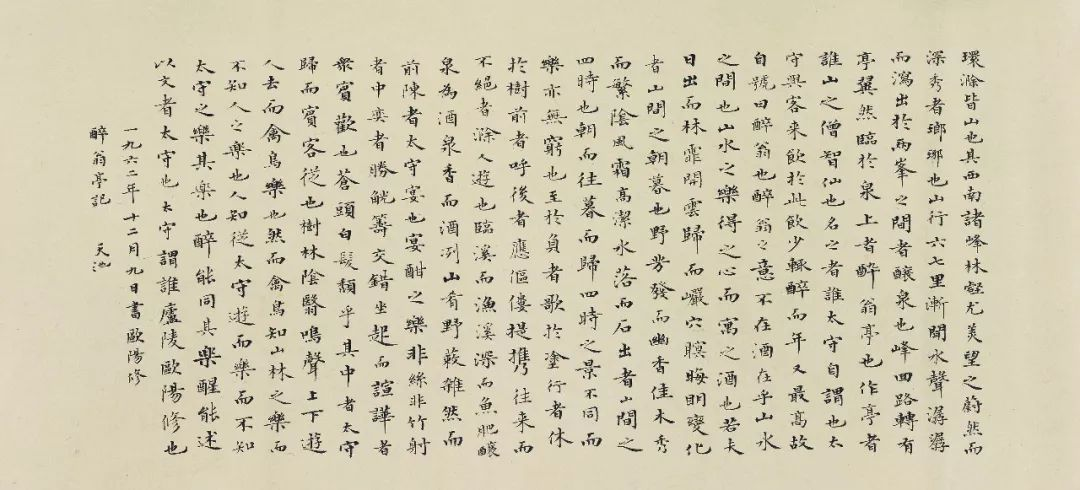 環滁皆山也其西南諸峰林壑尤美望之蔚然而
深秀者瑯琊也山行六七里漸聞水聲潺潺
而瀉出於兩峯之間者釀泉也峰回路轉有
亭翼然臨於泉上者醉翁亭也作亭者
誰山之僧智仙也名之者誰太守自謂也太
守與客來飲於此飲少輒醉而年又最高故
自號曰醉翁也醉翁之意不在酒在乎山水
之間也山水之樂得之心而寓之酒也若夫
日出而林霏開雲歸而巖穴暝晦明變化
者山間之朝暮也野芳發而幽香佳木秀
而繁陰風霜高潔水落而石出者山間之
四時也朝而往暮而歸四時之景不同而
樂亦無窮也至於負者歌於塗行者休
於樹前者呼後者應傴僂提攜往來而
不絕者滁人遊也臨溪而漁溪深而魚肥釀
泉為酒泉香而酒冽山肴野蔌雜然而
前陳者太守宴也宴酣之樂非絲非竹射
者中奕者勝觥籌交錯坐起而諠譁者
衆賓歡也蒼頭白髮頹乎其中者太守
歸而賓客從也樹林陰翳鳴聲上下遊
人去而禽鳥樂也然而禽鳥知山林之樂而
不知人之樂也人知從太守遊而樂而不知
太守之樂其樂也醉能同其樂醒能述
以文者太守也太守謂誰廬陵歐陽修也
一九六二年十二月九日書歐陽修
醉翁亭記 天池